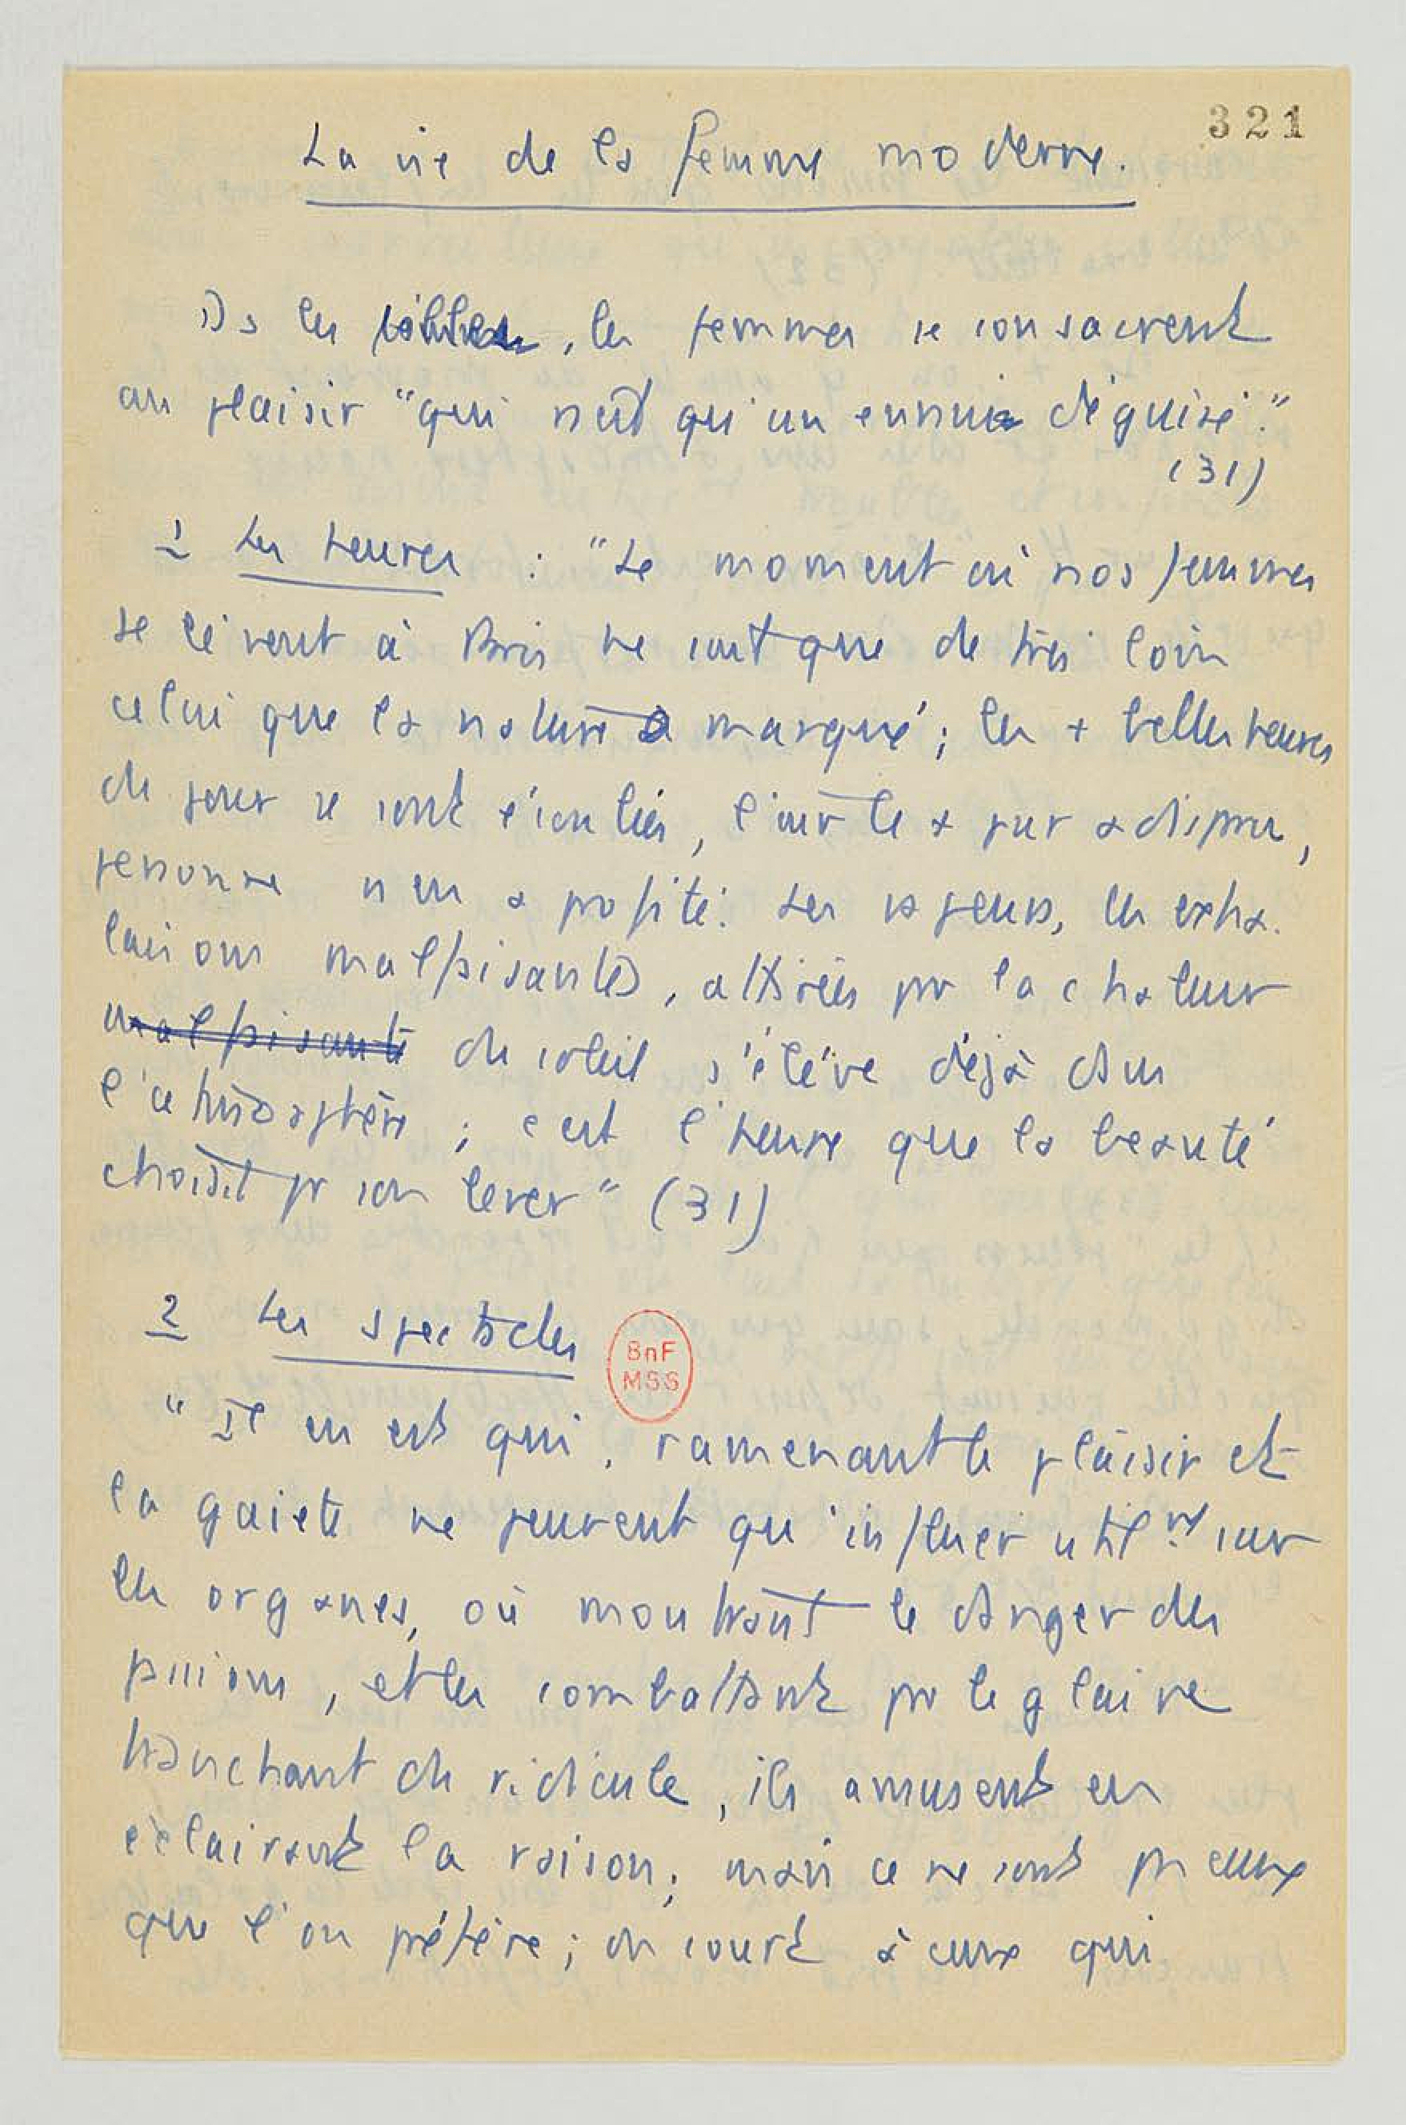 321
La vie de la femme moderne.
Ds les villes, les femmes se consacrent
au plaisir "qui n'est qu'un ennui déguisé."
(31)
1 Les heures : "Le moment où nos femmes
se lèvent à Paris ne suit que de très loin
celui que la nature a marqué ; les + belles heures
du jour se sont écoulées, l'air le + pur a disparu,
personne n'en a profité. Les vapeurs, les exha-
laisons malfaisantes, attirées par la chaleur
malfaisante du soleil s'élève déjà dans
l'atmosphère ; c'est l'heure que la beauté
choisit pr son lever" (31)
2 Les spectacles
BnF
MSS
"Il en est qui, ramenant le plaisir et
la gaieté ne peuvent qu'influer utilmt sur
les organes, où montrant le danger des
passions, et les combattant par le glaive
tranchant du ridicule, ils amusent en
éclairant la raison ; mais ce ne sont pas ceux
que l'on préfère ; on court à ceux qui